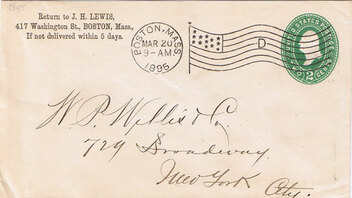 1895
Return to J. H. LEWIS,
417 Washington St., BOSTON, MASS.
If not delivered within 5 days.
BOSTON, MASS.
MAR 20
9-AM
1895
D
UNITED STATES
2
W. P. Willis & Co.
729 Broadway.
New York City.